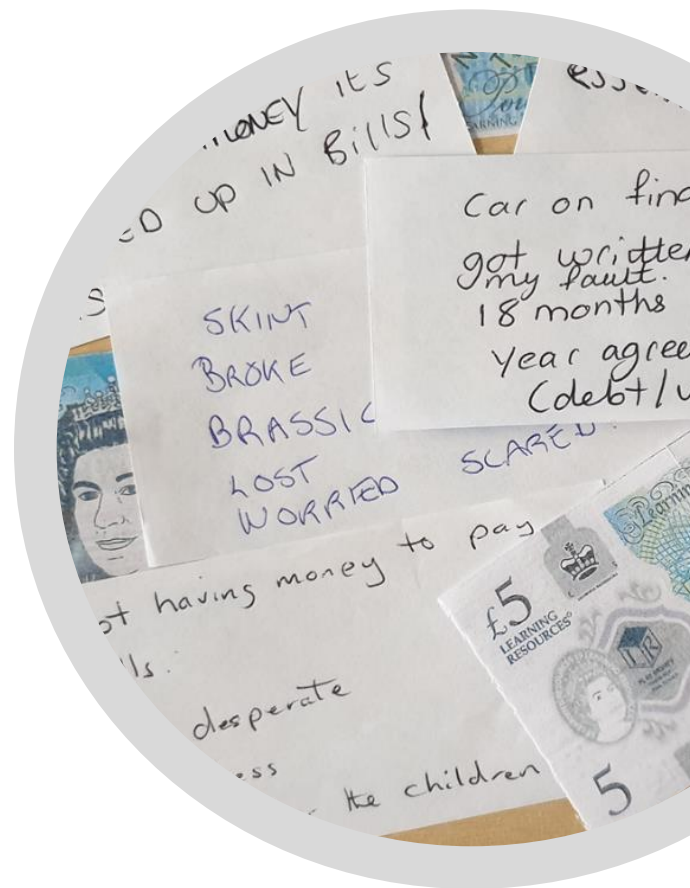 MONEY ITS
UP IN BILLS!
Car on
got
my fault.
18 months
Year
(debt/
SKINT
BROKE
BRASSIC
LOST
WORRIED SCARED
having money to pay
desperate
the children
£5
LEARNING
RESOURCES
Learning
5